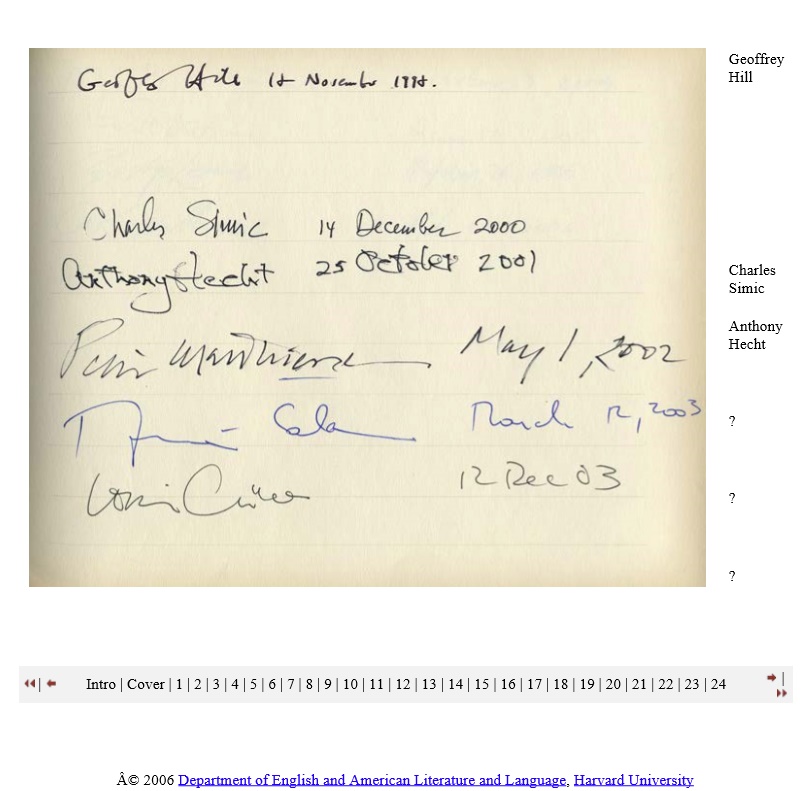 Geoffrey Hill 18 November 1998.
Geoffrey
Hill
Charles Simic 14 December 2000
Anthony Hecht 25 October 2001
Charles
Simic
Anthony
Hecht
May 1, 2002
March 12, 2003
?
12 Dec 03
?
?
Intro | Cover | 1 | 2 | 3 | 4 | 5 | 6 | 7 | 8 | 9 | 10 | 11 | 12 | 13 | 14 | 15 | 16 | 17 | 18 | 19 | 20 | 21 | 22 | 23 | 24
Â© 2006 Department of English and American Literature and Language, Harvard University